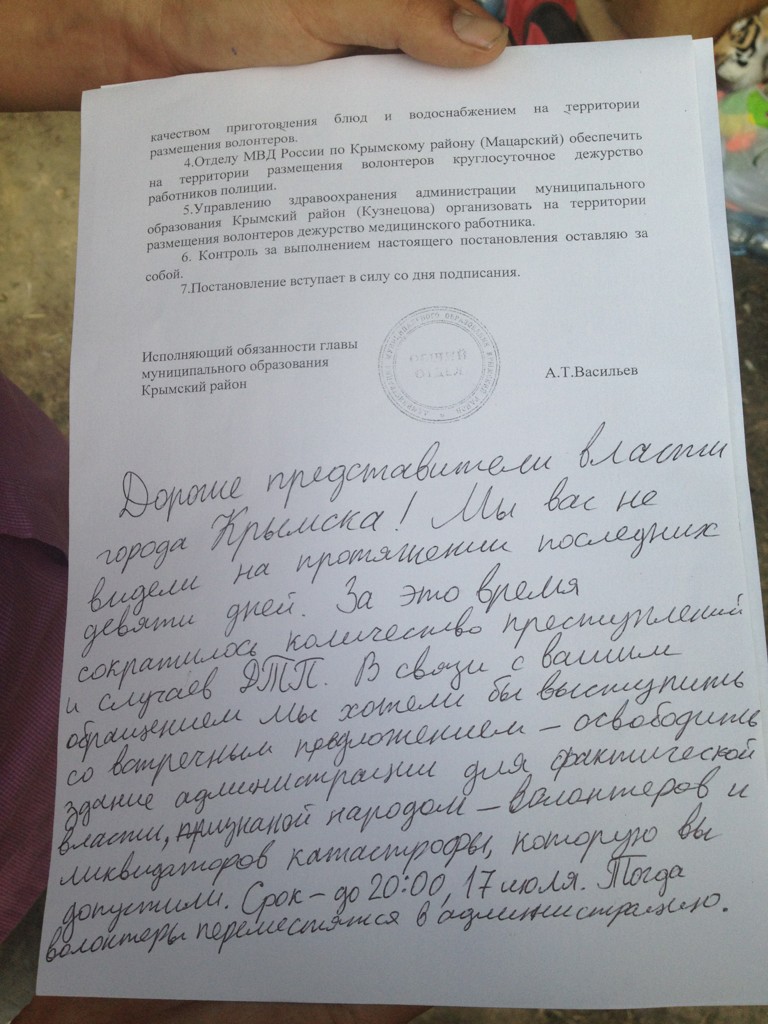 качеством приготовления блюд и водоснабжением на территории
размещения волонтеров.
4.Отделу МВД России по Крымскому району (Мацарский) обеспечить
на территории размещения волонтеров круглосуточное дежурство
работников полиции.
5.Управлению здравоохранения администрации муниципального
образования Крымский район (Кузнецова) организовать на территории
размещения волонтеров дежурство медицинского работника.
6. Контроль за выполнением настоящего постановления оставляю за
собой.
7.Постановление вступает в силу со дня подписания.
Исполняющий обязанности главы
муниципального образования
Крымский район
ОБЩИЙ
ОТДЕЛ
А.Т.Васильев
Дорогие представители власти
города Крымска! Мы вас не
видели на протяжении последних
девяти дней. За это время
сократилось количество преступлений
и случаев ДТП. В связи с вашим
обращением мы хотели бы выступить
со встречным предложением – освободить
здание администрации для фактической
власти, признаной народом – волонтеров и
ликвидаторов катастрофы, которую вы
допустили. Срок – до 20:00, 17 июля. Тогда
волонтеры переместятся в администрацию.